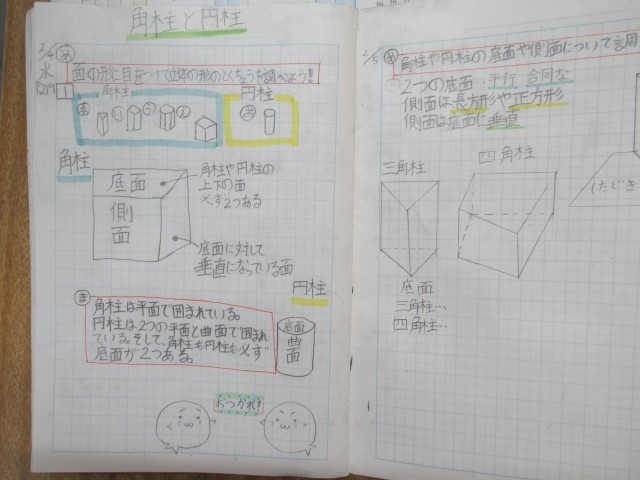 角柱と円柱
2/4
水
P.219
1
め
面の形に目をつけて立体の形のとくちょうを調べよう!!
角柱
円柱
あ
い
う
え
お
角柱
底面
側面
角柱や円柱の
上下の面
必ず2つある
底面に対して
垂直になっている面
円柱
ま
角柱は平面で囲まれている。
円柱は2つの平面と曲面で囲まれ
ている。そして、角柱も円柱も必ず
底面が2つある。
底面
曲面
おつかれ!
2/5
め
角柱や円柱の底面や側面について
2つの底面…平行 合同な
側面は長方形や正方形
側面は底面に垂直
三角柱
四角柱
したじき
底面
三角柱…
四角柱…